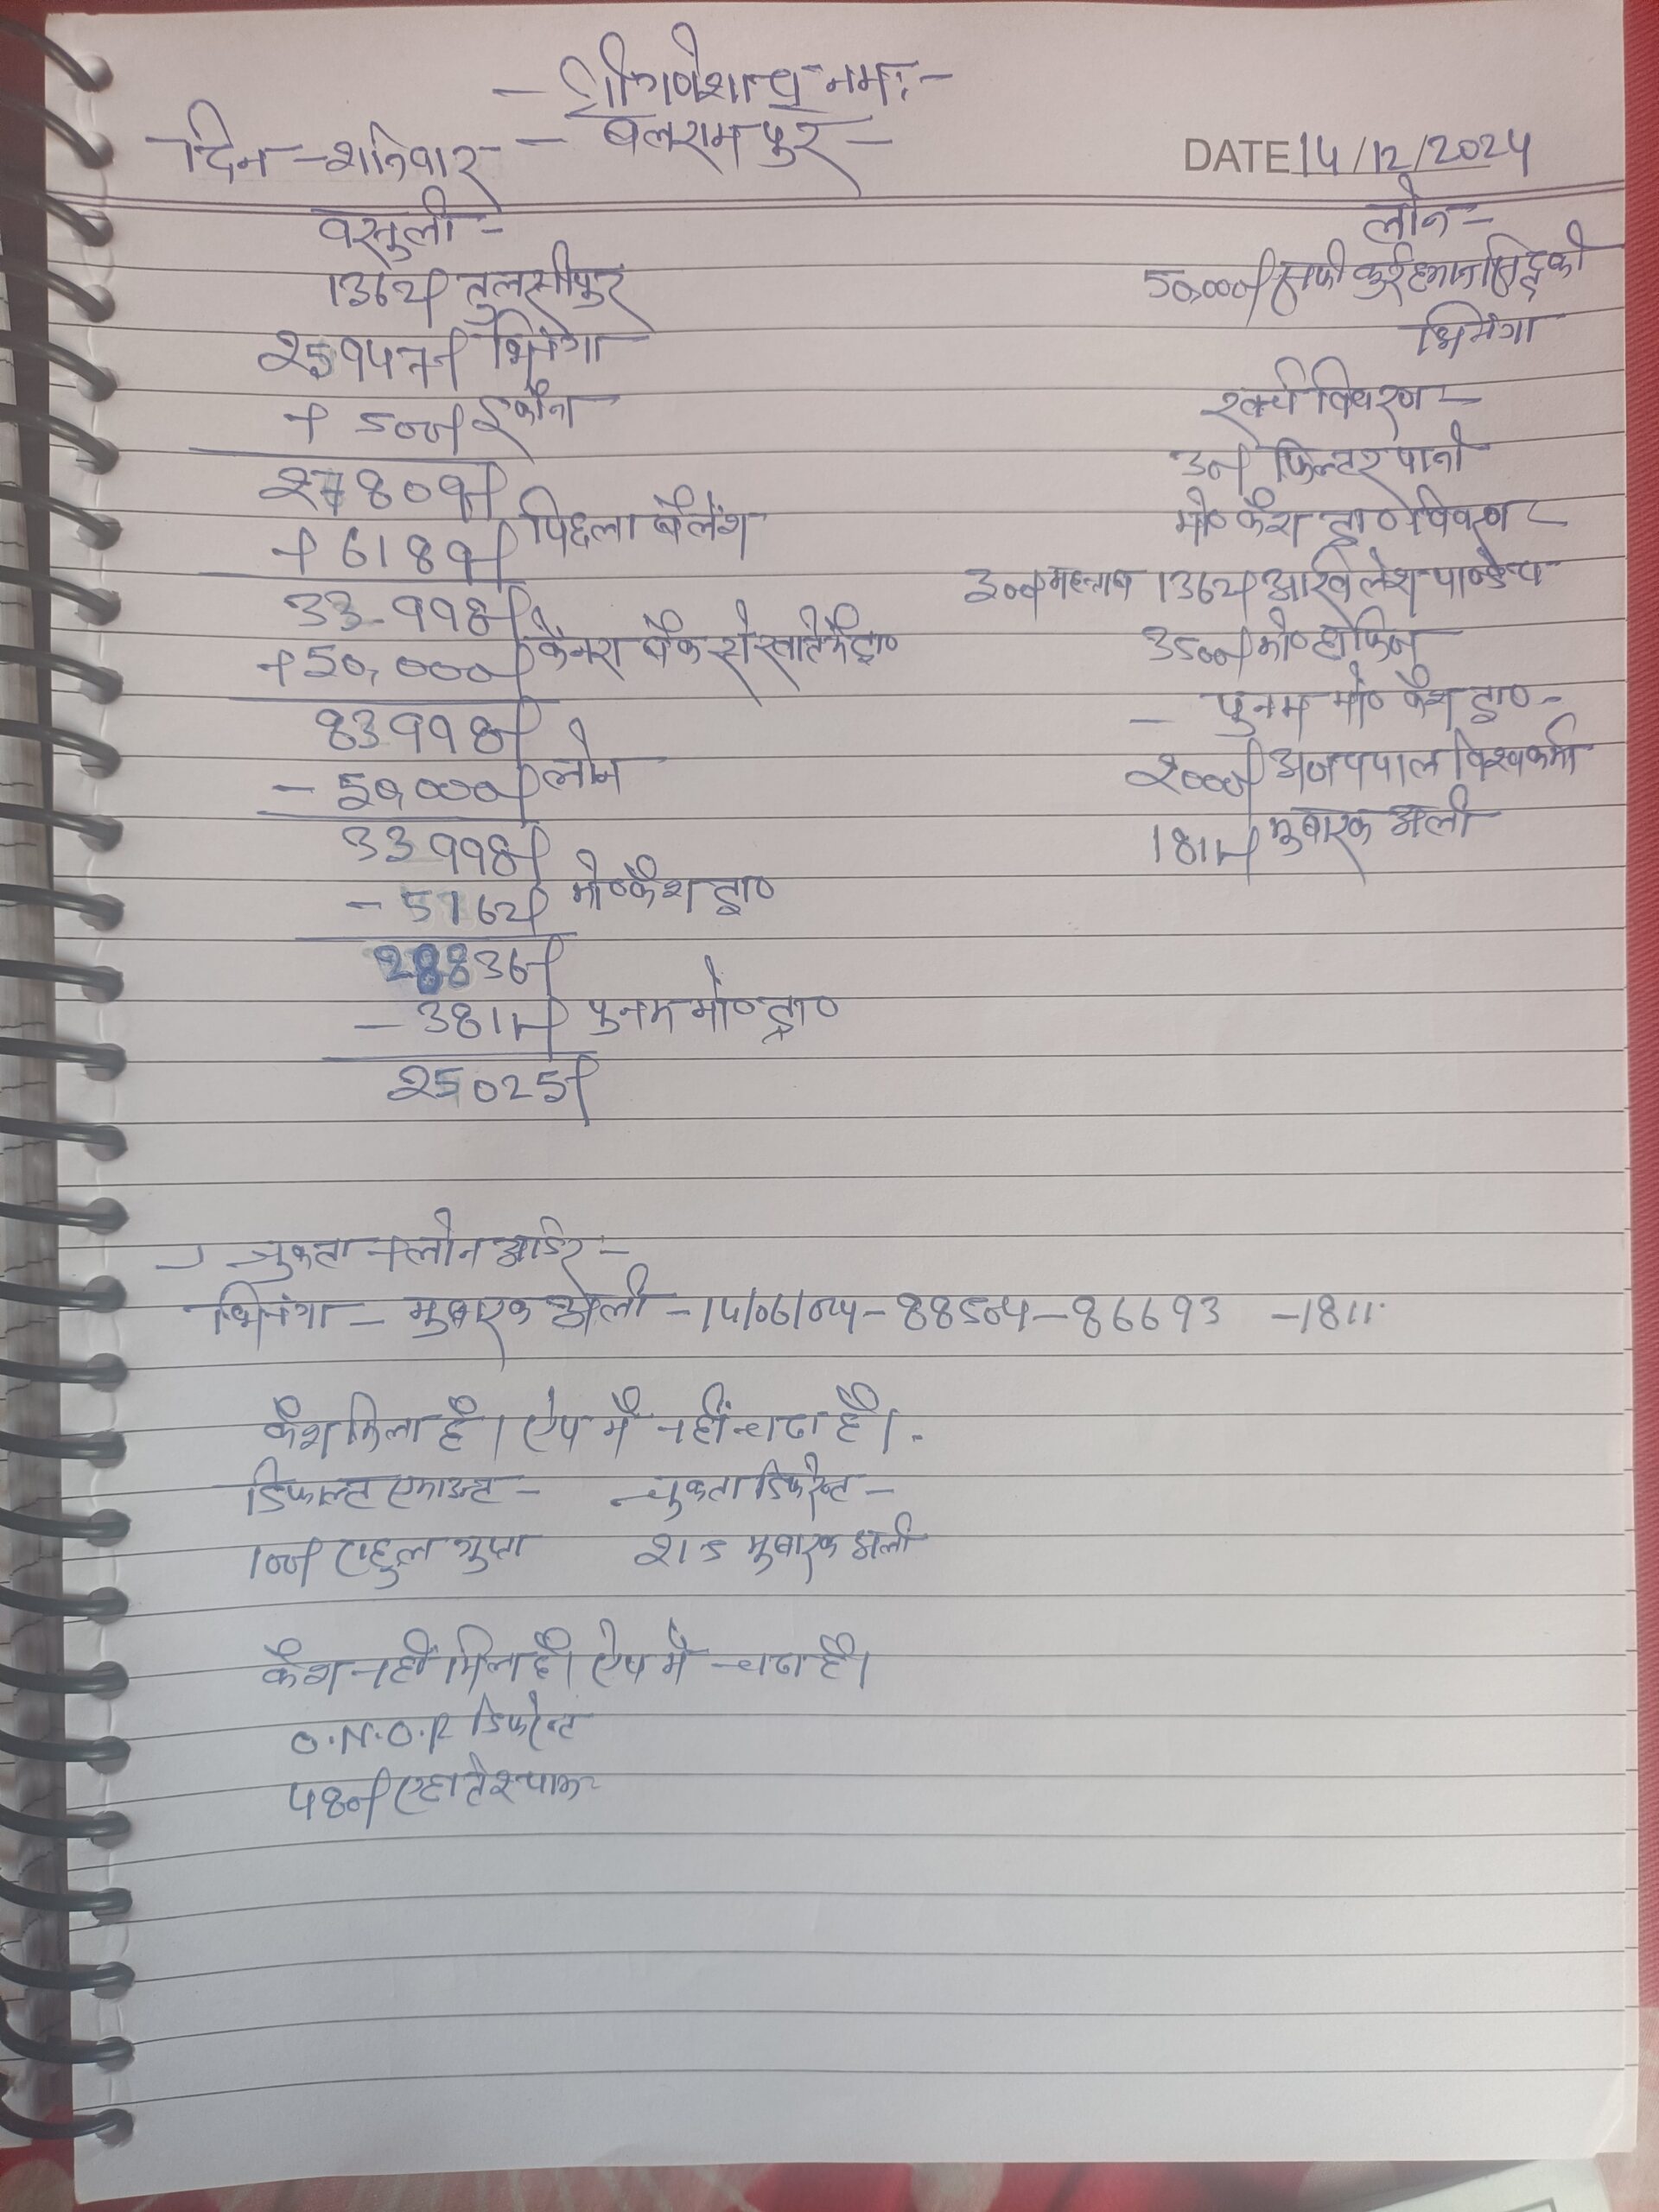 - श्री गणेशाय नमः -
दिन - शनिवार - बलरामपुर -
DATE 14/12/2024
वसुली -
1362/ तुलसीपुर
25947/ भिनगा
+ 500/ इकौना
27809/
+ 6189/ पिछला बैलेंश
33998/
+50,000/ कैनरा बैंक से खाते में ट्रा०
83998/
- 50,000/ लोन
33998/
- 5162/ मो० कैश ट्रा०
28836/
- 3811/ पुनम मो० ट्रा०
25025/
लोन -
50,000/
भिनगा
खर्च विवरण -
30/ फिल्टर पानी
मो० कैश ट्रा० विवरण -
300/ महताब 1362/ अखिलेश पाण्डेय
3500/ मो०
- पुनम मो० कैश ट्रा० -
2000/ अजयपाल विश्वकर्मा
1811/ मुबारक अली
- चुकता + लोन आर्डर -
भिनगा - मुबारक अली - 14/06/024 - 88504 - 86693 - 1811
कैश मिला है। ऐप में नहीं चढा है।
डिफाल्ट एमाउन्ट - चुकता डिफरेन्ट -
100/ राहुल गुप्ता 215 मुबारक अली
कैश नहीं मिला है। ऐप में चढा है।
O.N.O.R डिफरेन्ट
480/